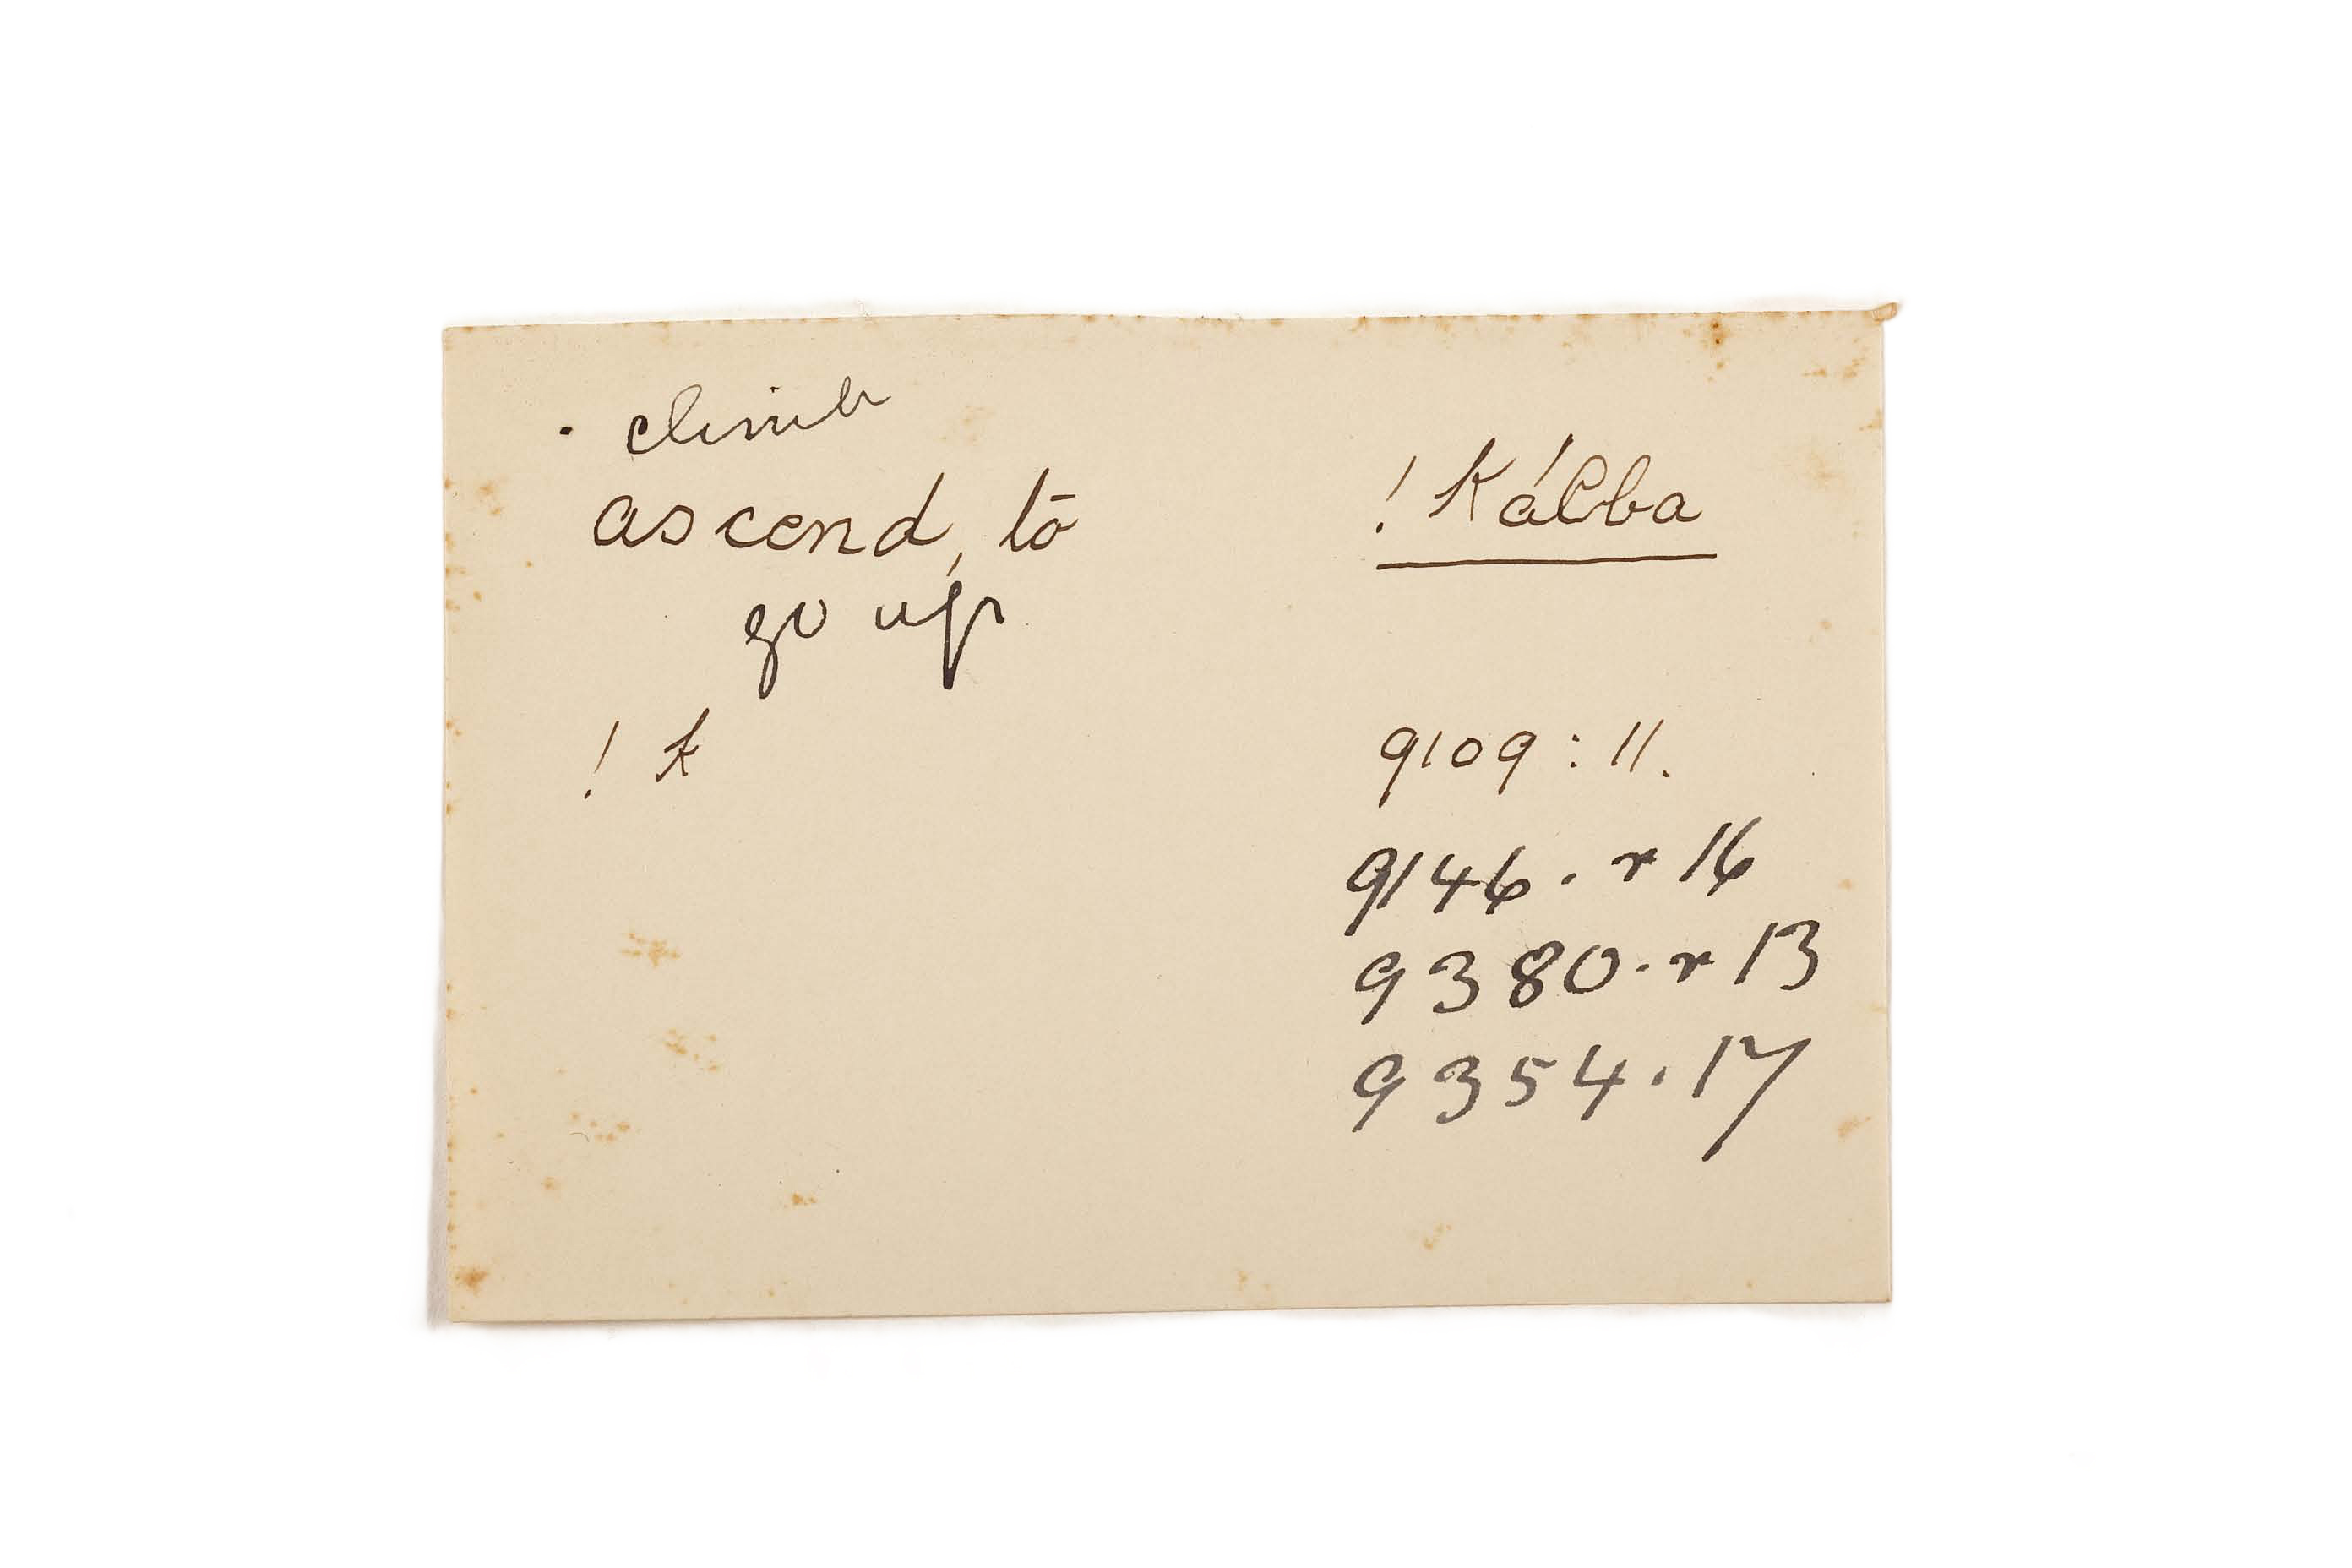 · climb
ascend, to
go up
! k
! kábba
9109 : 11.
9146 . r 16
9380 . r 13
9354 . 17